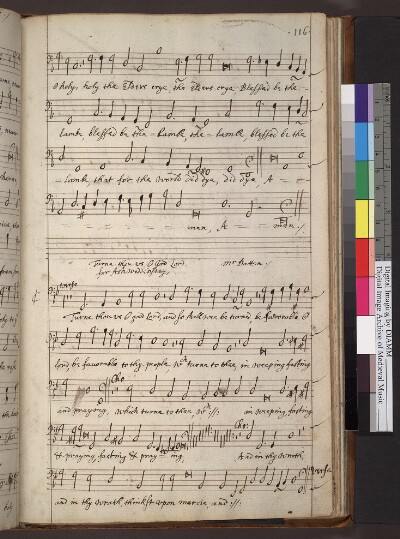 116
O holy, holy the Elders crye, the Elders crye, Blessed be the -
Lambe blessed be the - Lambe, the - Lambe, blessed be the
- Lambe, that for the world did dye, did dye, A - -
- - - - - - men, A - - men.
Turne thou us O God Lord
for Ashwednsday. mr
verse
Turne thou us O good Lord, and so shall wee be turned be favorable O
lord, be favorable to thy people wch turne to thee, in weeping fasting
Cho
and praying, which turne to thee, wch :||: in weeping, fasting
Cho:
& praying, fasting & praying, And in thy wrath,
verse
and in thy wrath, thinkst upon mercie, and :||:
Digital Imaging by DIAMM
Digital Image Archive of Medieval Music